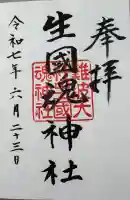 奉拝
生國魂神社
令和七年六月二十三日